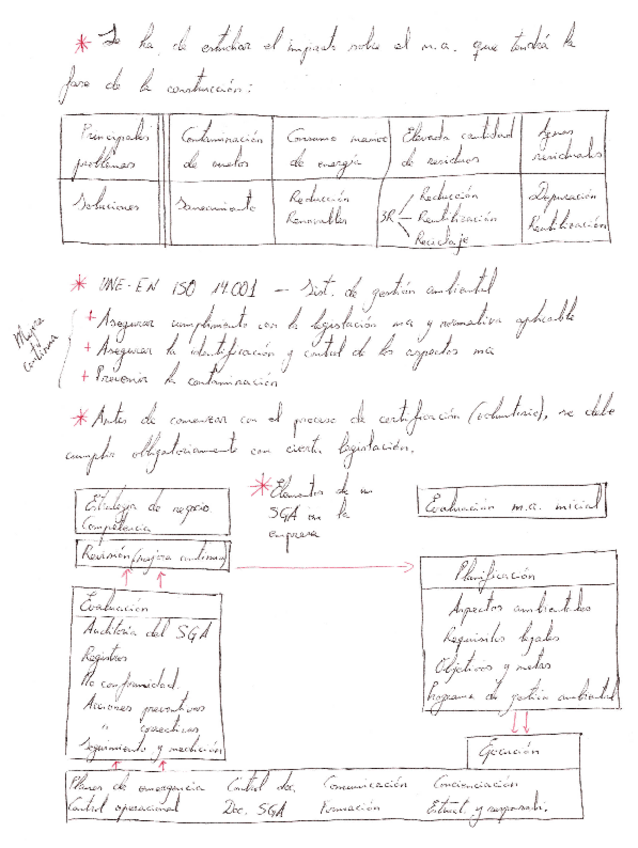 * Se ha de estudiar el impacto sobre el m.a. que tendrá la
fase de la construcción:
Principales problemas | Contaminación de suelos | Consumo masivo de energía | Elevada cantidad de residuos | Aguas residuales
Soluciones | Saneamiento | Reducción Renovables | 3R Reducción Reutilización Reciclaje | Depuración Reutilización
* UNE-EN ISO 14.001 — Sist. de gestión ambiental
Mejora continua
+ Asegurar cumplimiento con la legislación ma y normativa aplicable
+ Asegurar la identificación y control de los aspectos ma
+ Prevenir la contaminación
* Antes de comenzar con el proceso de certificación (voluntario), se debe
cumplir obligatoriamente con cierta legislación.
* Elementos de un
SGA en la
empresa
Estrategia de negocio
Competencia
Revisión (mejora continua)
Evaluación m.a. inicial
Planificación
Aspectos ambientales
Requisitos legales
Objetivos y metas
Programa de gestión ambiental
Evaluación
Auditoría del SGA
Registros
No conformidad
Acciones preventivas
" correctivas
Seguimiento y medición
Ejecución
Planes de emergencia Control doc. Comunicación Concienciación
Control operacional Doc. SGA Formación Estruct. y responsabi.